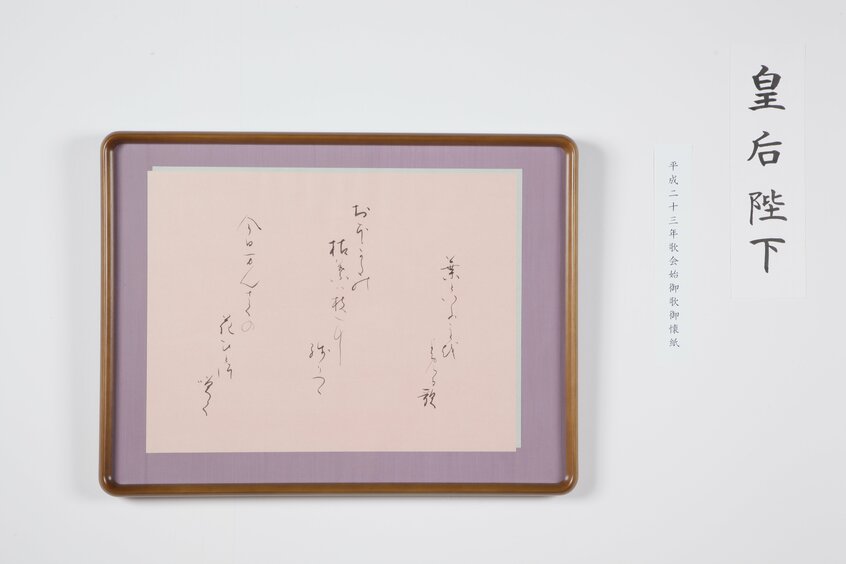 皇后陛下
平成二十三年歌会始御歌御懐紙
葉といふことを
よめる歌
おほかたの
枯葉は枝に
残りつつ
今日まんさくの
花ひとつ
咲く